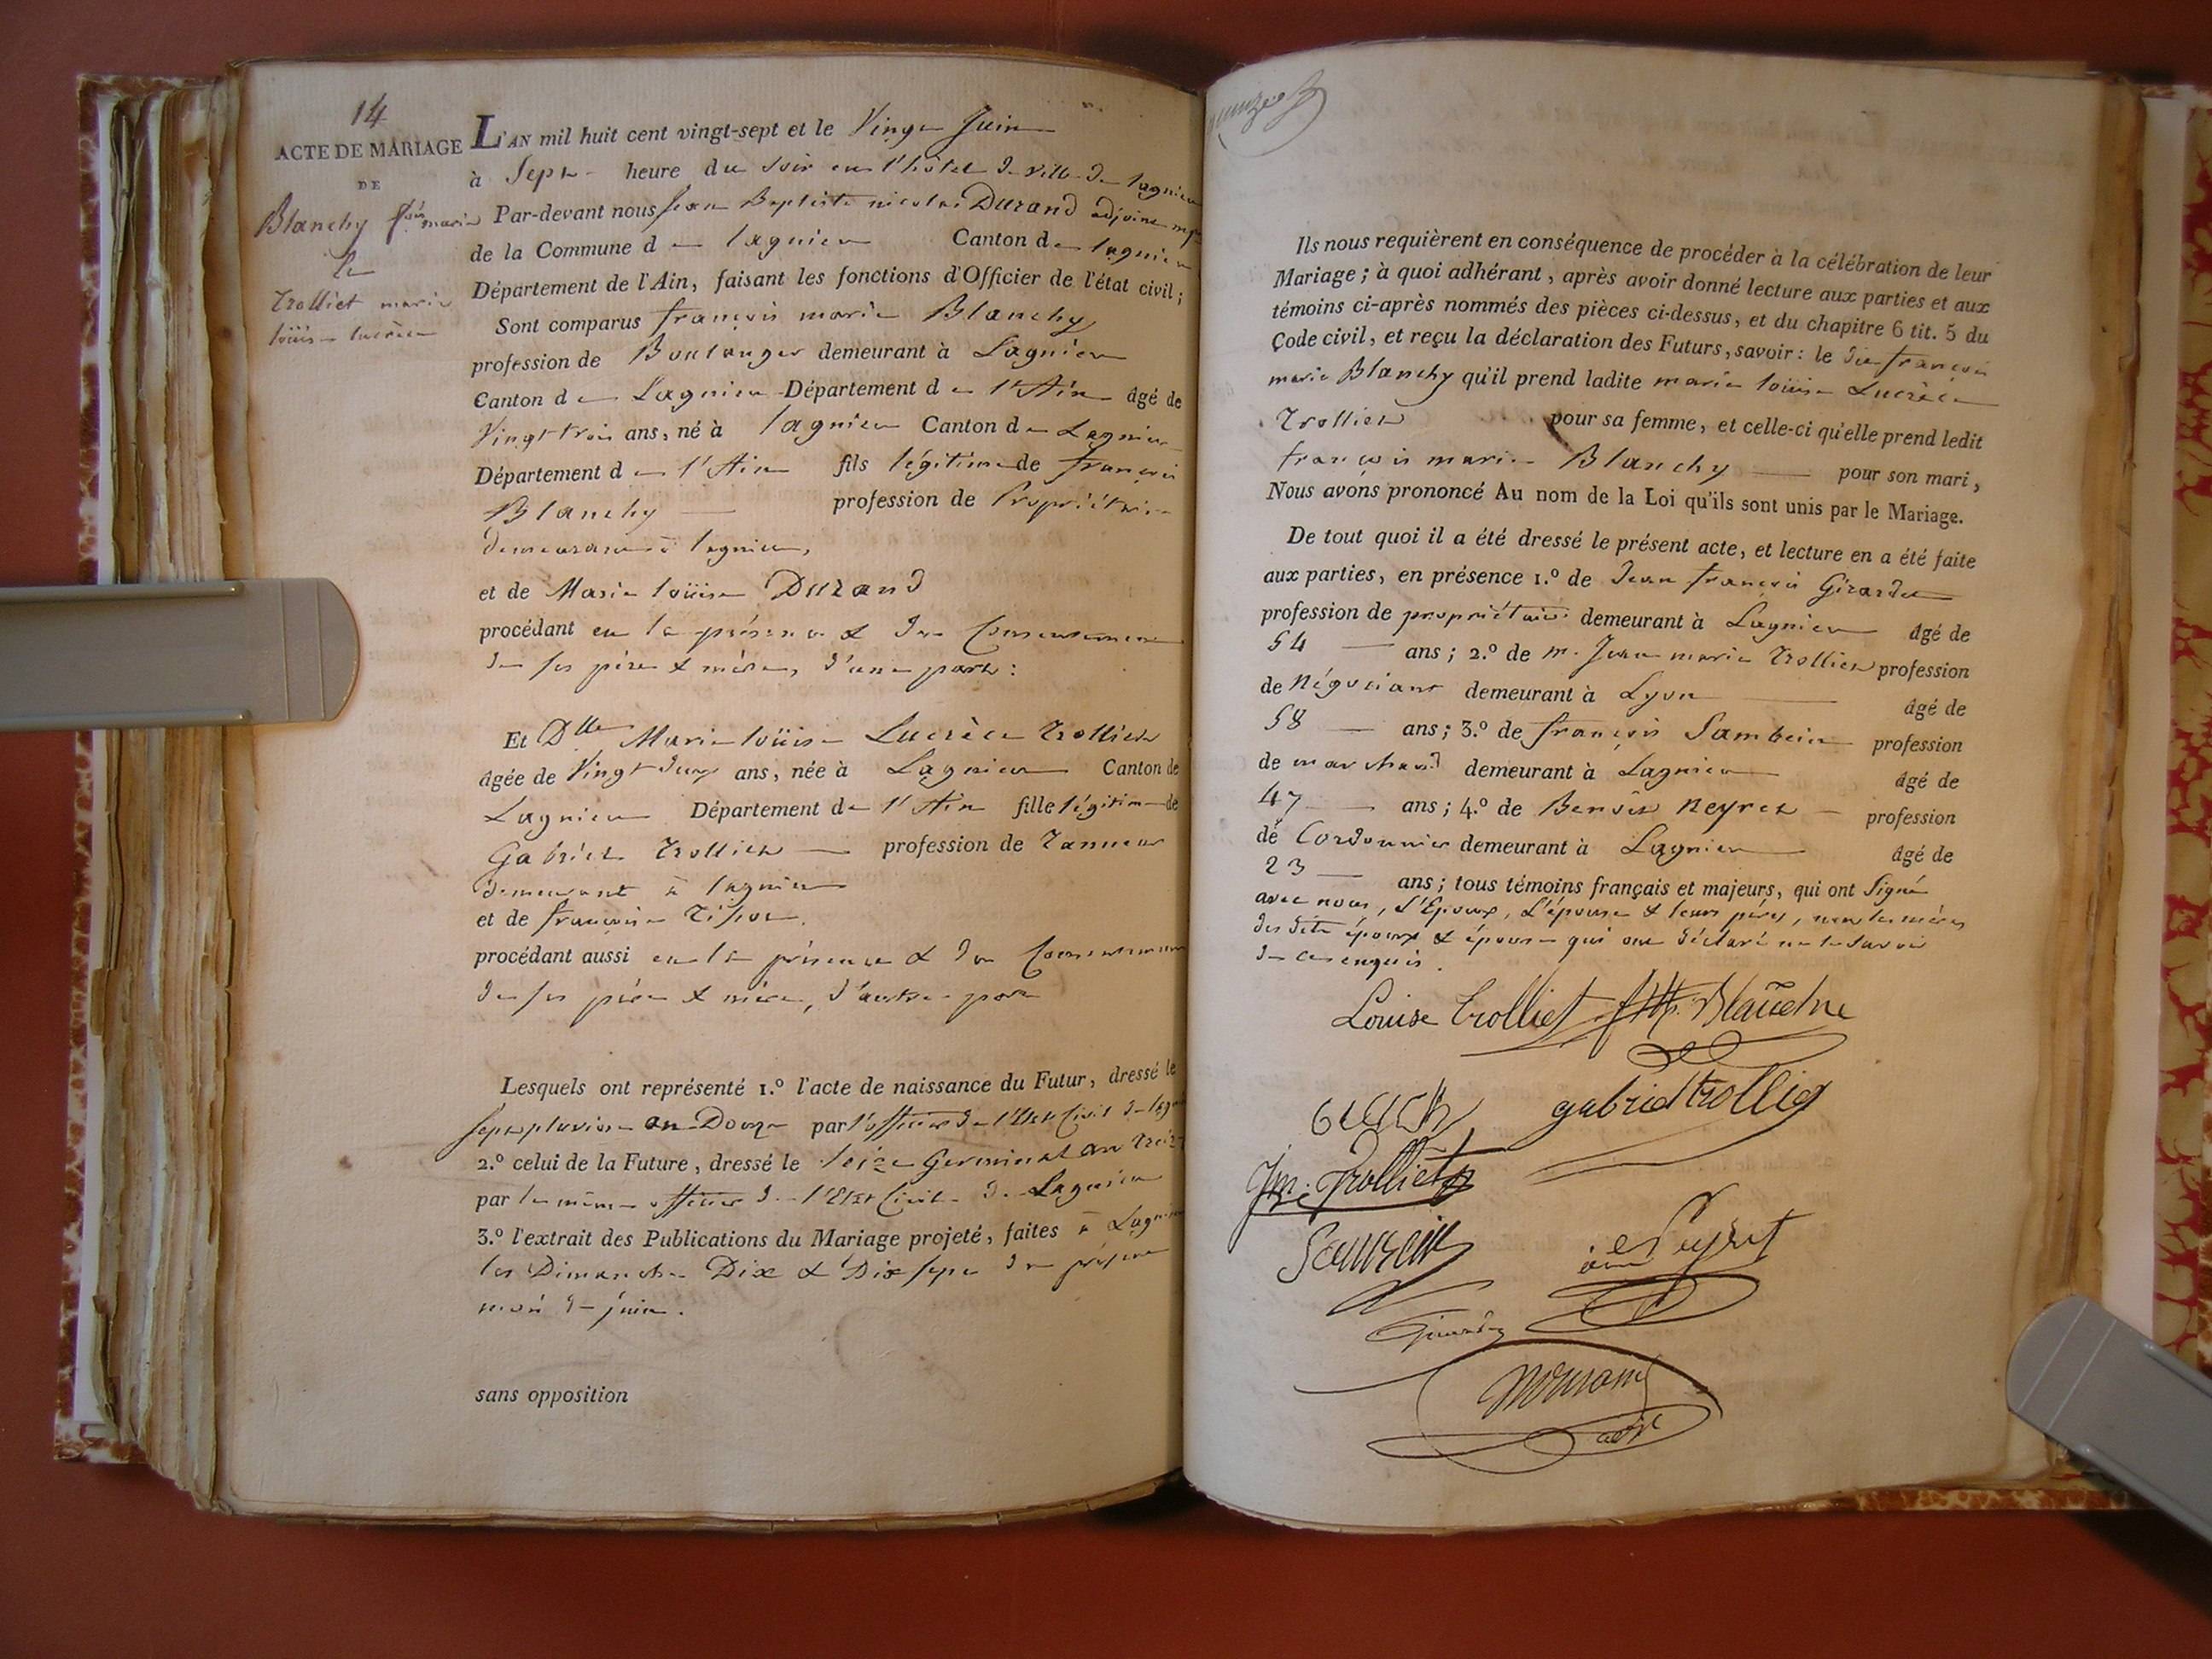 14
ACTE DE MARIAGE
DE
Blanchy fois marie
&
Trolliet marie
loüise lucrèce
L'AN mil huit cent vingt-sept et le Vingt Juin
à Sept heure du soir en l'hôtel de ville de lagnieu
Par-devant nous Jean Baptiste nicolas Durand adjoint
de la Commune de lagnieu Canton de lagnieu
Département de l'Ain, faisant les fonctions d'Officier de l'état civil;
Sont comparus françois marie Blanchy
profession de Boulanger demeurant à Lagnieu
Canton de Lagnieu Département de l'Ain âgé de
Vingt trois ans, né à lagnieu Canton de Lagnieu
Département de l'Ain fils légitime de françois
Blanchy — profession de Propriétaire
demeurant à lagnieu,
et de Marie loüise Durand
procédant en la présence & du Consentement
de ses père & mère, d'une part:
Et Dlle Marie loüise Lucrèce Trolliet
âgée de Vingt deux ans, née à Lagnieu Canton de
Lagnieu Département de l'Ain fille légitime de
Gabriel Trolliet — profession de Tanneur
demeurant à lagnieu
et de françoise
procédant aussi en la présence & du Consentement
de ses père & mère, d'autre part
Lesquels ont représenté 1.º l'acte de naissance du Futur, dressé le
sept pluviose an Douze par l'officier de l'Etat Civil de
2.º celui de la Future, dressé le seize Germinal an treize
par le même officier de l'Etat Civil de Lagnieu
3.º l'extrait des Publications du Mariage projeté, faites à Lagnieu
les Dimanche Dix & Dix sept du présent
mois de juin.
sans opposition
Ils nous requièrent en conséquence de procéder à la célébration de leur
Mariage; à quoi adhérant, après avoir donné lecture aux parties et aux
témoins ci-après nommés des pièces ci-dessus, et du chapitre 6 tit. 5 du
Code civil, et reçu la déclaration des Futurs, savoir: le dit françois
marie Blanchy qu'il prend ladite marie loüise Lucrèce
Trolliet pour sa femme, et celle-ci qu'elle prend ledit
françois marie Blanchy — pour son mari,
Nous avons prononcé Au nom de la Loi qu'ils sont unis par le Mariage.
De tout quoi il a été dressé le présent acte, et lecture en a été faite
aux parties, en présence 1.º de Jean françois Girardet
profession de propriétaire demeurant à Lagnieu âgé de
54 — ans; 2.º de m. Jean marie Trolliet profession
de Négociant demeurant à Lyon — âgé de
58 — ans; 3.º de françois — profession
de marchand demeurant à Lagnieu âgé de
47 — ans; 4.º de Benoît Neyret — profession
de Cordonnier demeurant à Lagnieu — âgé de
23 — ans; tous témoins français et majeurs, qui ont Signé
avec nous, l'Epoux, L'épouse & leurs pères, non les mères
des dits époux & épouse qui ont déclaré ne le savoir
de ce enquis.
Louise trolliet
gabriel trolliet
Jm. Trolliet